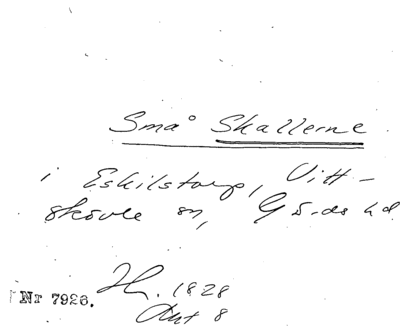 Små Skallerne
i Eskilstorp, Vitt-
skövle sn, Gärds hd
Nr 7926. H. 1828
Akt 8